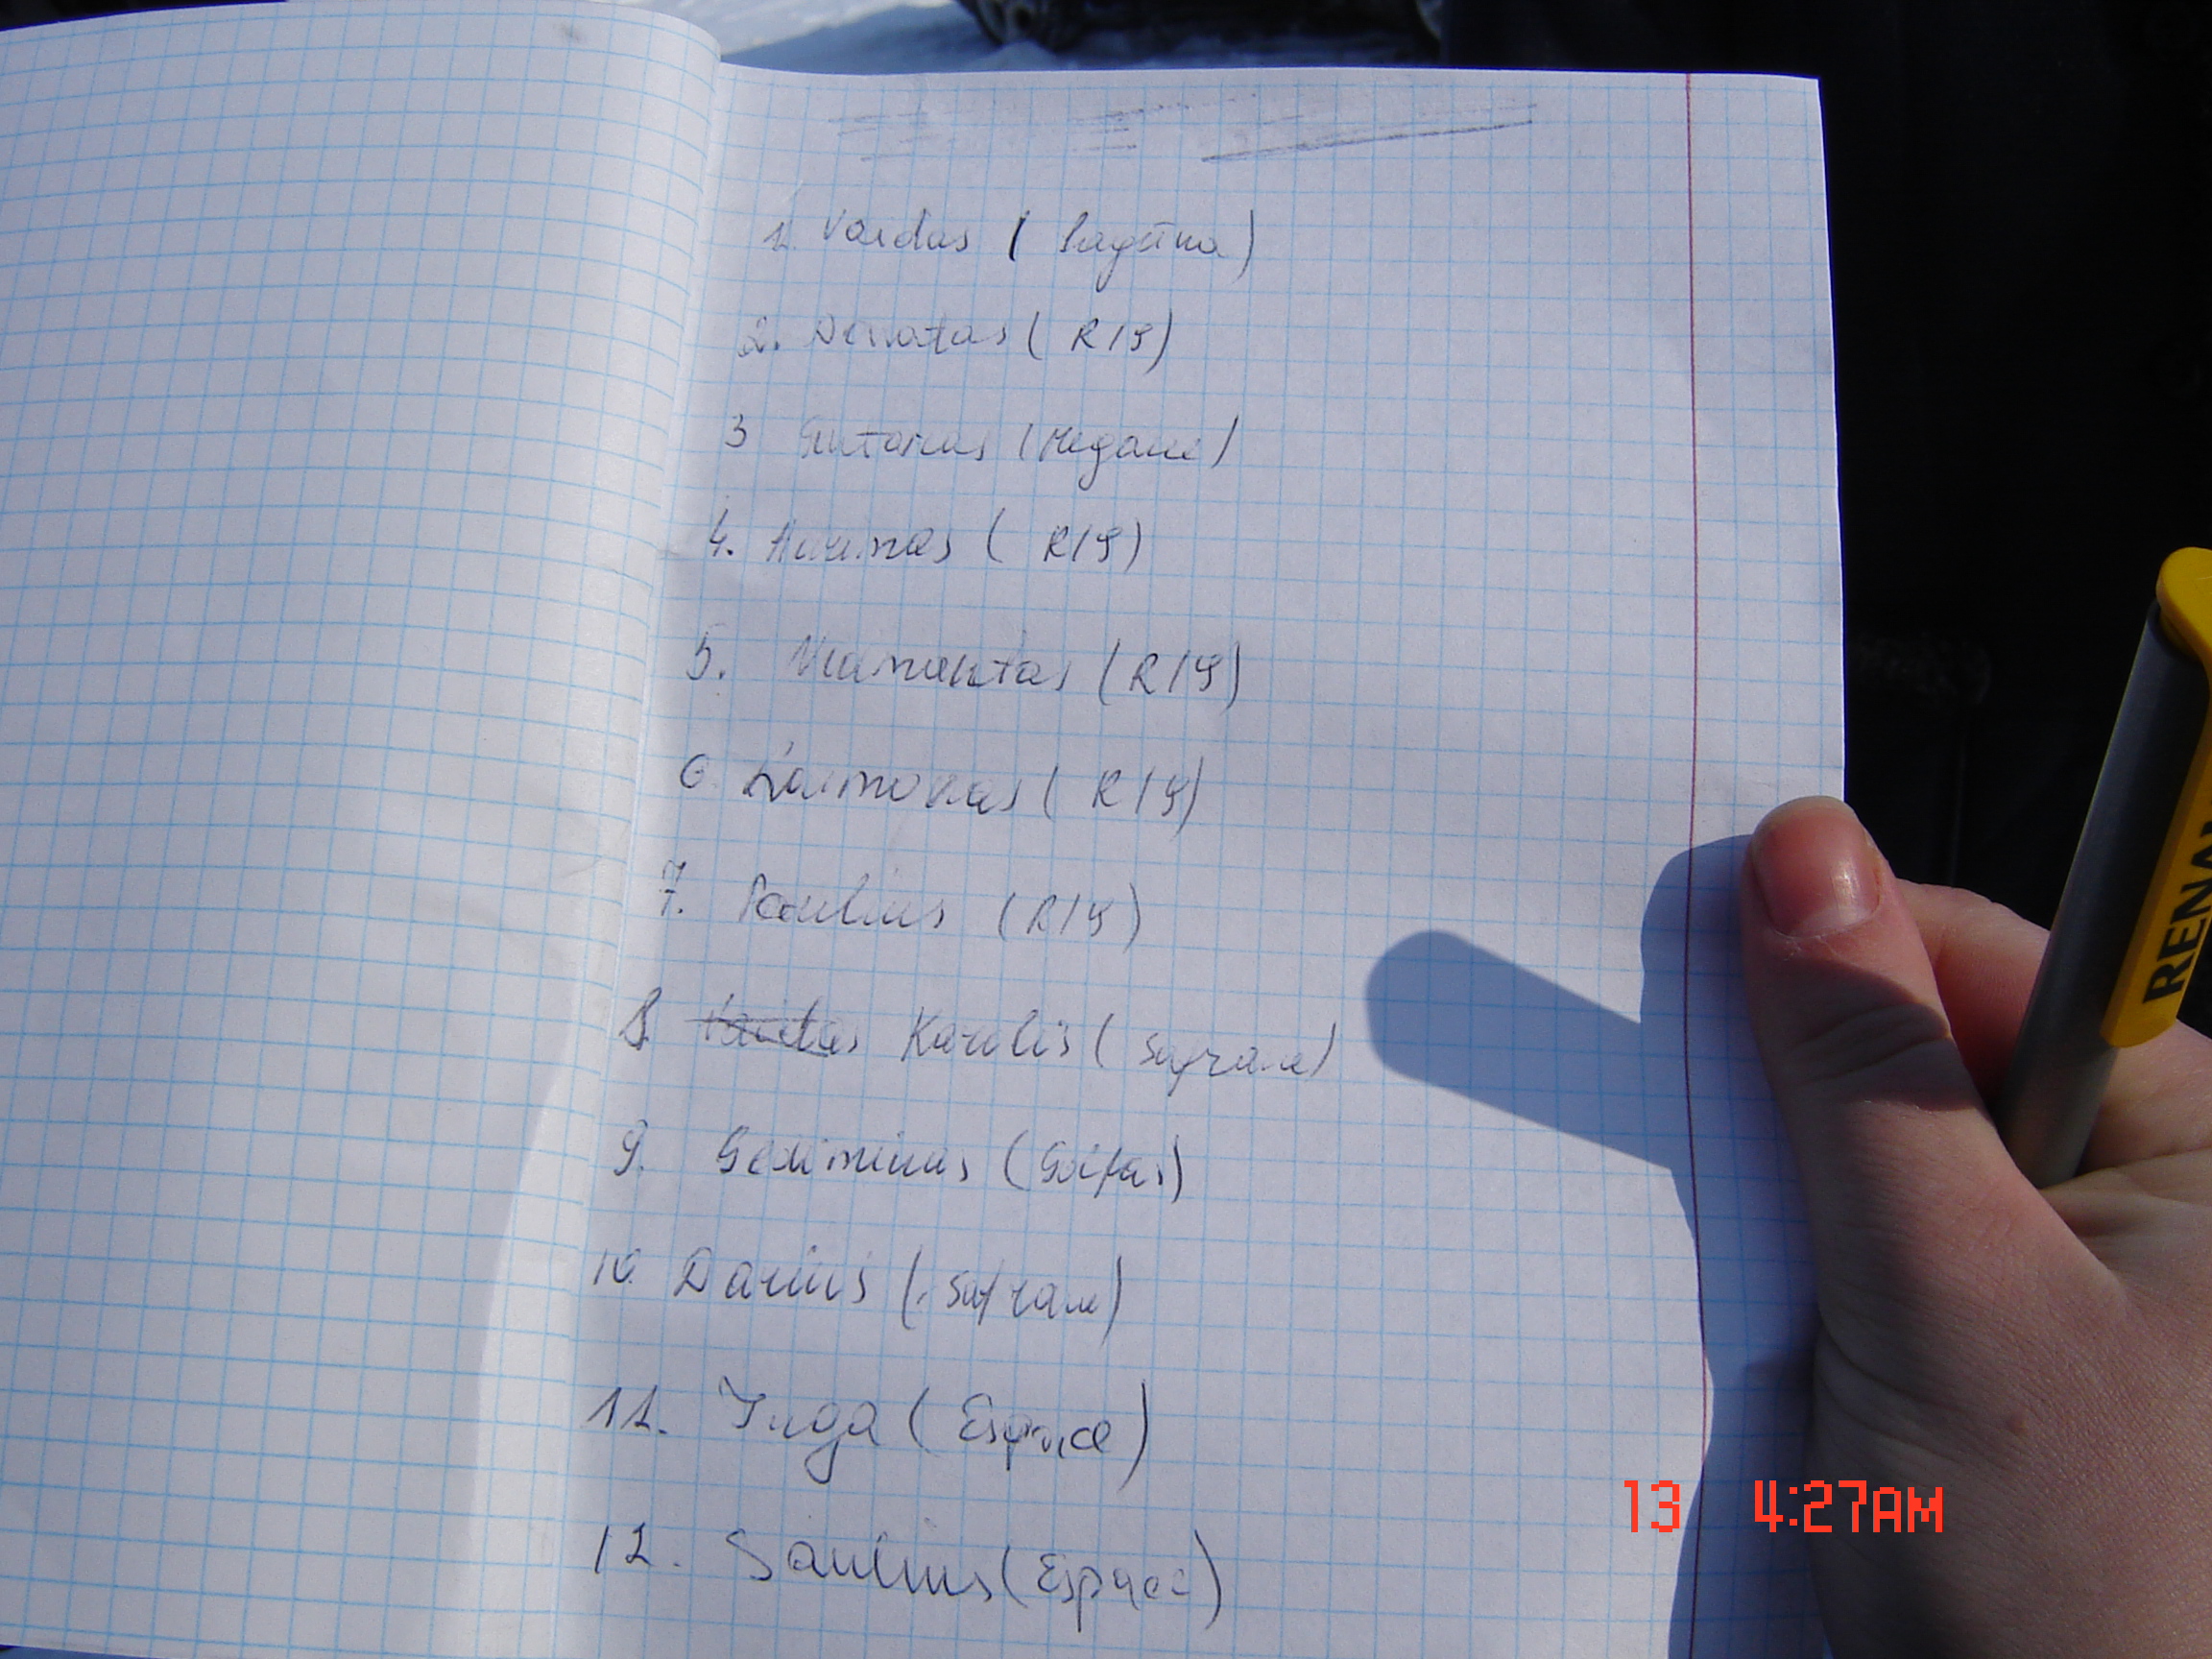 1. Vaidas ( Lagūna)
2. Donatas ( R19)
3 Gintaras (Megane)
4. Aurimas ( R19)
5. (R19)
6. Laimonas ( R19)
7. Paulius (R19)
8. Vaidas Karolis ( Safrane)
9. Gediminas (Golfas)
10. Darius ( Safrane)
11. Inga ( Espace)
12. Saulius (Espace)
RENAU
13 4:27AM